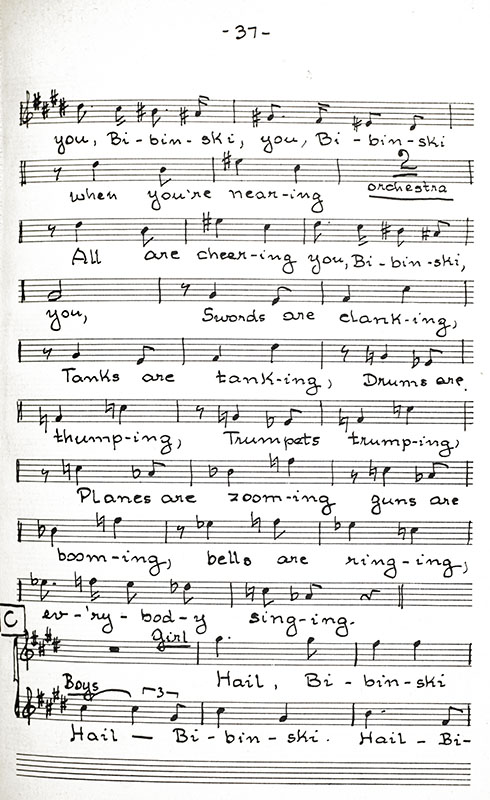 -37-
you, Bi-bin-ski, you, Bi-bin-ski
2
when you're near-ing orchestra
All are cheer-ing you, Bi-bin-ski,
you, Swords are clank-ing,
Tanks are tank-ing, Drums are
thump-ing, Trumpets trump-ing,
Planes are zoom-ing guns are
boom-ing, bells are ring-ing,
ev-'ry-bod-y sing-ing.
C
Girl
Hail, Bi-bin-ski
Boys 3
Hail — Bi-bin-ski. Hail-Bi-